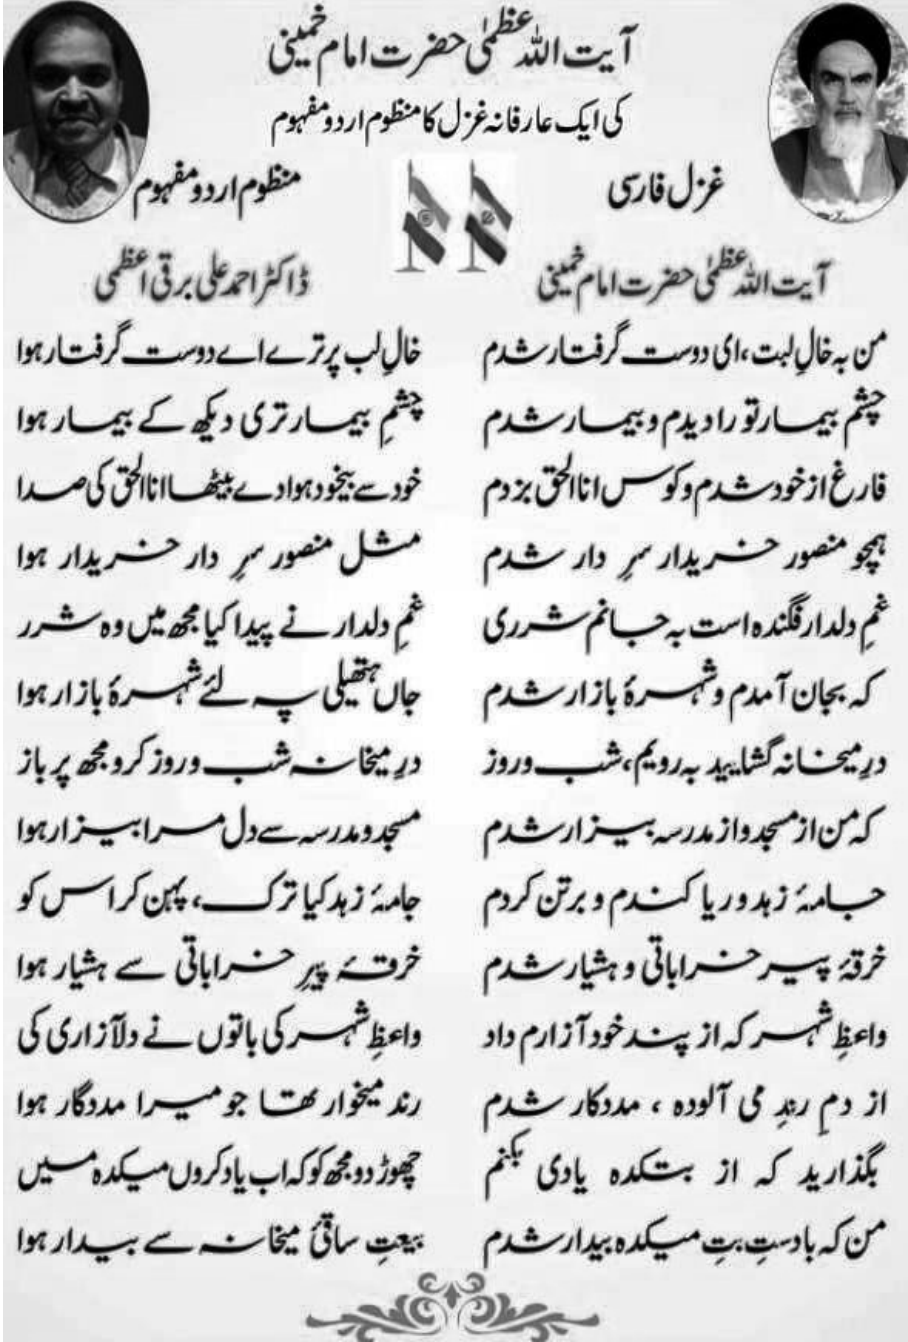 آیت اللہ عظمیٰ حضرت امام خمینی
کی ایک عارفانہ غزل کا منظوم اردو مفہوم
غزل فارسی
منظوم اردو مفہوم
آیت اللہ عظمیٰ حضرت امام خمینی
ڈاکٹر احمد علی برقی اعظمی
من بہ خالِ لبت، ای دوست گرفتار شدم
چشم بیمار تو را دیدم و بیمار شدم
فارغ از خود شدم و کوس انا الحق بزدم
ہمچو منصور خریدار سرِ دار شدم
غمِ دلدار فگندہ است بہ جانم شرری
کہ بجان آمدم و شہرۂ بازار شدم
درِ میخانہ گشایید بہ رویم، شب و روز
کہ من از مسجد و از مدرسہ بیزار شدم
جامۂ زہد و ریا کندم و بر تن کردم
خرقۂ پیر خراباتی و ہشیار شدم
واعظِ شہر کہ از پند خود آزارم داد
از دمِ رندِ می آلودہ ، مددکار شدم
بگذارید کہ از بتکدہ یادی بکنم
من کہ با دستِ بتِ میکدہ بیدار شدم
خالِ لب پر ترے اے دوست گرفتار ہوا
چشمِ بیمار تری دیکھ کے بیمار ہوا
خود سے بیخود ہوا دے بیٹھا انا الحق کی صدا
مثل منصور سرِ دار خریدار ہوا
غمِ دلدار نے پیدا کیا مجھ میں وہ شرر
جاں ہتھیلی پہ لئے شہرۂ بازار ہوا
درِ میخانہ شب و روز کرو مجھ پر باز
مسجد و مدرسہ سے دل مرا بیزار ہوا
جامۂ زہد کیا ترک، پہن کر اس کو
خرقۂ پیرِ خراباتی سے ہشیار ہوا
واعظِ شہر کی باتوں نے دلآزاری کی
رند میخوار تھا جو میرا مددگار ہوا
چھوڑ دو مجھ کو کہ اب یاد کروں میکدہ میں
بیعتِ ساقیٔ میخانہ سے بیدار ہوا